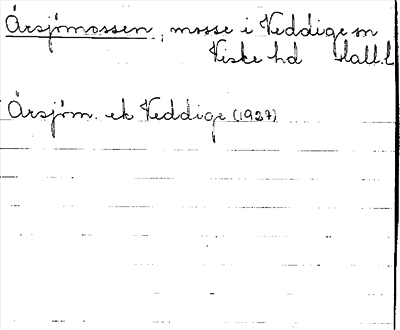 Årsjömossen, mosse i Veddige sn
Viske hd Hall.l
Årsjöm. ek Veddige (1927)